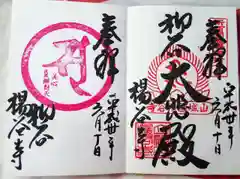 奉拝
平成卅年六月十日
柳谷大悲殿
楊谷寺
奉拝
平成卅年六月十日
柳谷
楊谷寺